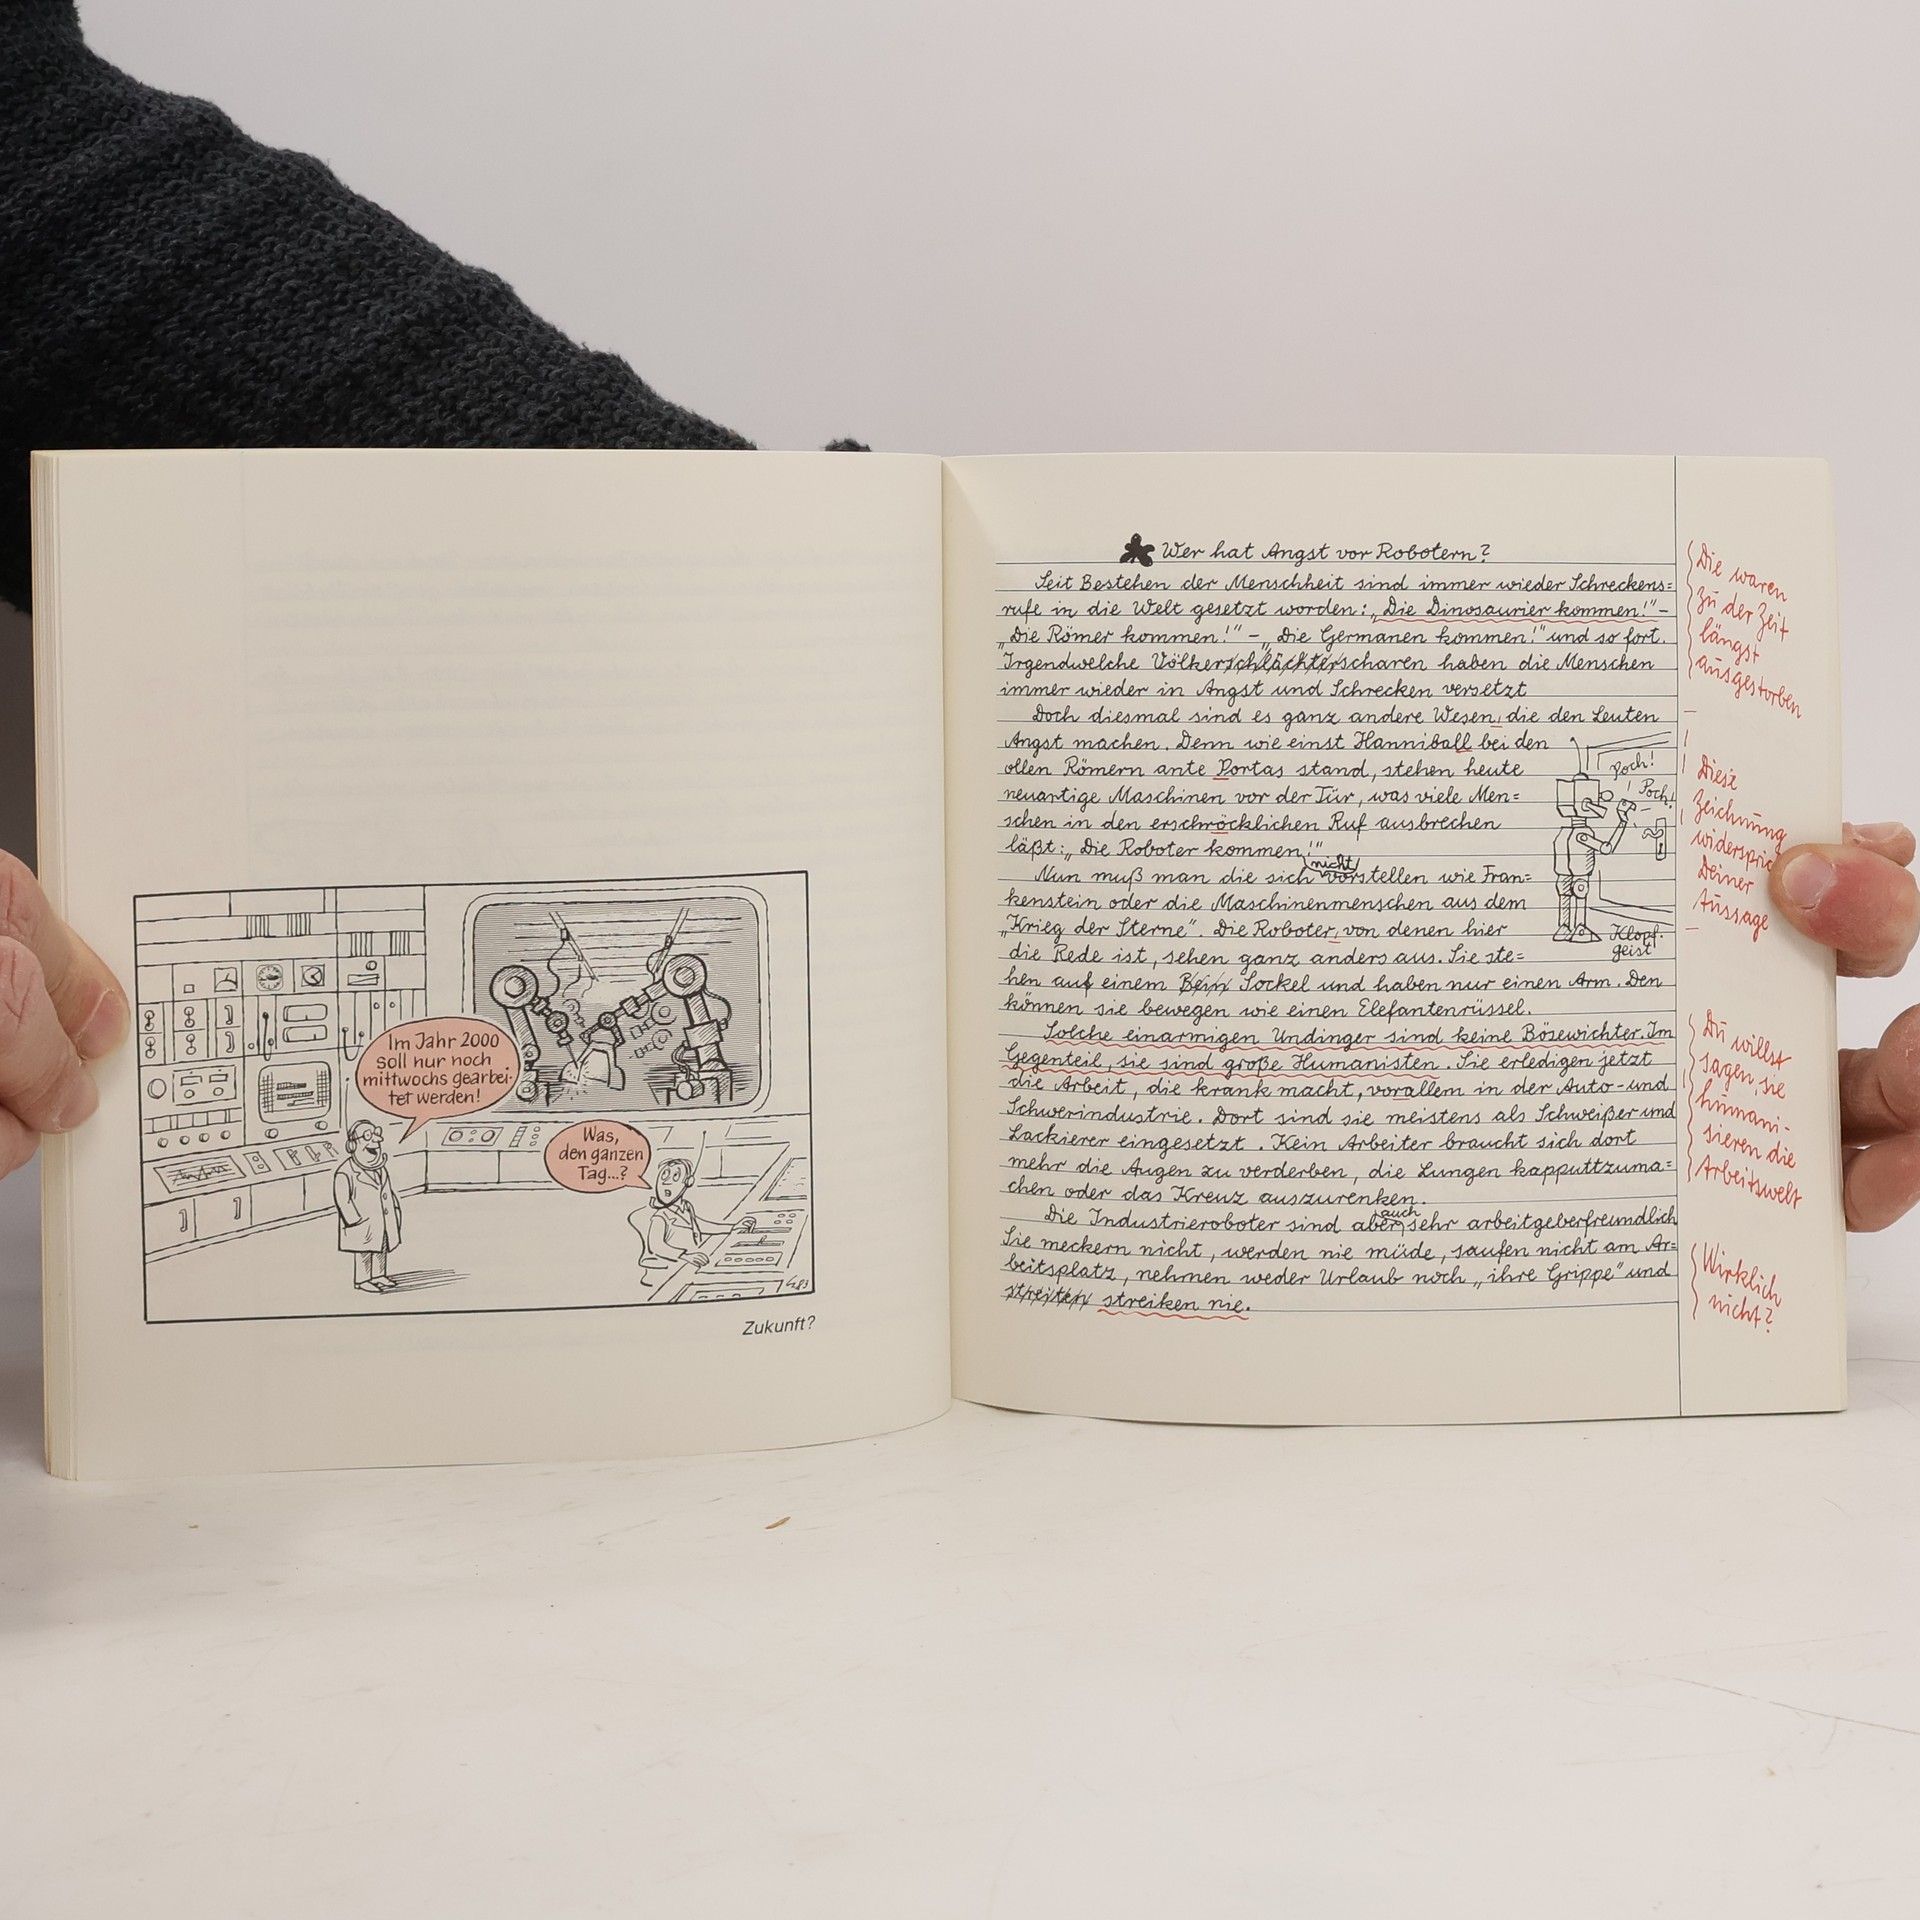 Im Jahr 2000
soll nur noch
mittwochs gearbei-
tet werden!
Was,
den ganzen
Tag...?
G83
Zukunft?
Wer hat Angst vor Robotern?
Seit Bestehen der Menschheit sind immer wieder Schreckens=
rufe in die Welt gesetzt worden: „Die Dinosaurier kommen!" –
„Die Römer kommen!" – „Die Germanen kommen!" und so fort.
Irgendwelche Völkerschlächterscharen haben die Menschen
immer wieder in Angst und Schrecken versetzt
Doch diesmal sind es ganz andere Wesen, die den Leuten
Angst machen. Denn wie einst Hanniball bei den
ollen Römern ante Portas stand, stehen heute
neuartige Maschinen vor der Tür, was viele Men=
schen in den erschröcklichen Ruf ausbrechen
läßt: „Die Roboter kommen!"
nicht
Nun muß man die sich vorstellen wie Fran=
kenstein oder die Maschinenmenschen aus dem
„Krieg der Sterne". Die Roboter, von denen hier
die Rede ist, sehen ganz anders aus. Sie ste=
hen auf einem Bein Sockel und haben nur einen Arm. Den
können sie bewegen wie einen Elefantenrüssel.
Solche einarmigen Undinger sind keine Bösewichter. Im
Gegenteil, sie sind große Humanisten. Sie erledigen jetzt
die Arbeit, die krank macht, vorallem in der Auto- und
Schwerindustrie. Dort sind sie meistens als Schweißer und
Lackierer eingesetzt. Kein Arbeiter braucht sich dort
mehr die Augen zu verderben, die Lungen kapputtzuma=
chen oder das Kreuz auszurenken.
auch
Die Industrieroboter sind aber sehr arbeitgeberfreundlich
Sie meckern nicht, werden nie müde, saufen nicht am Ar=
beitsplatz, nehmen weder Urlaub noch „ihre Grippe" und
streiten streiken nie.
Poch!
Poch!
Klopf-
geist
Die waren
zu der Zeit
längst
ausgestorben
Diese
Zeichnung
widerspric
Deiner
Aussage
Du willst
sagen, sie
humani-
sieren die
Arbeitswelt
Wirklich
nicht?